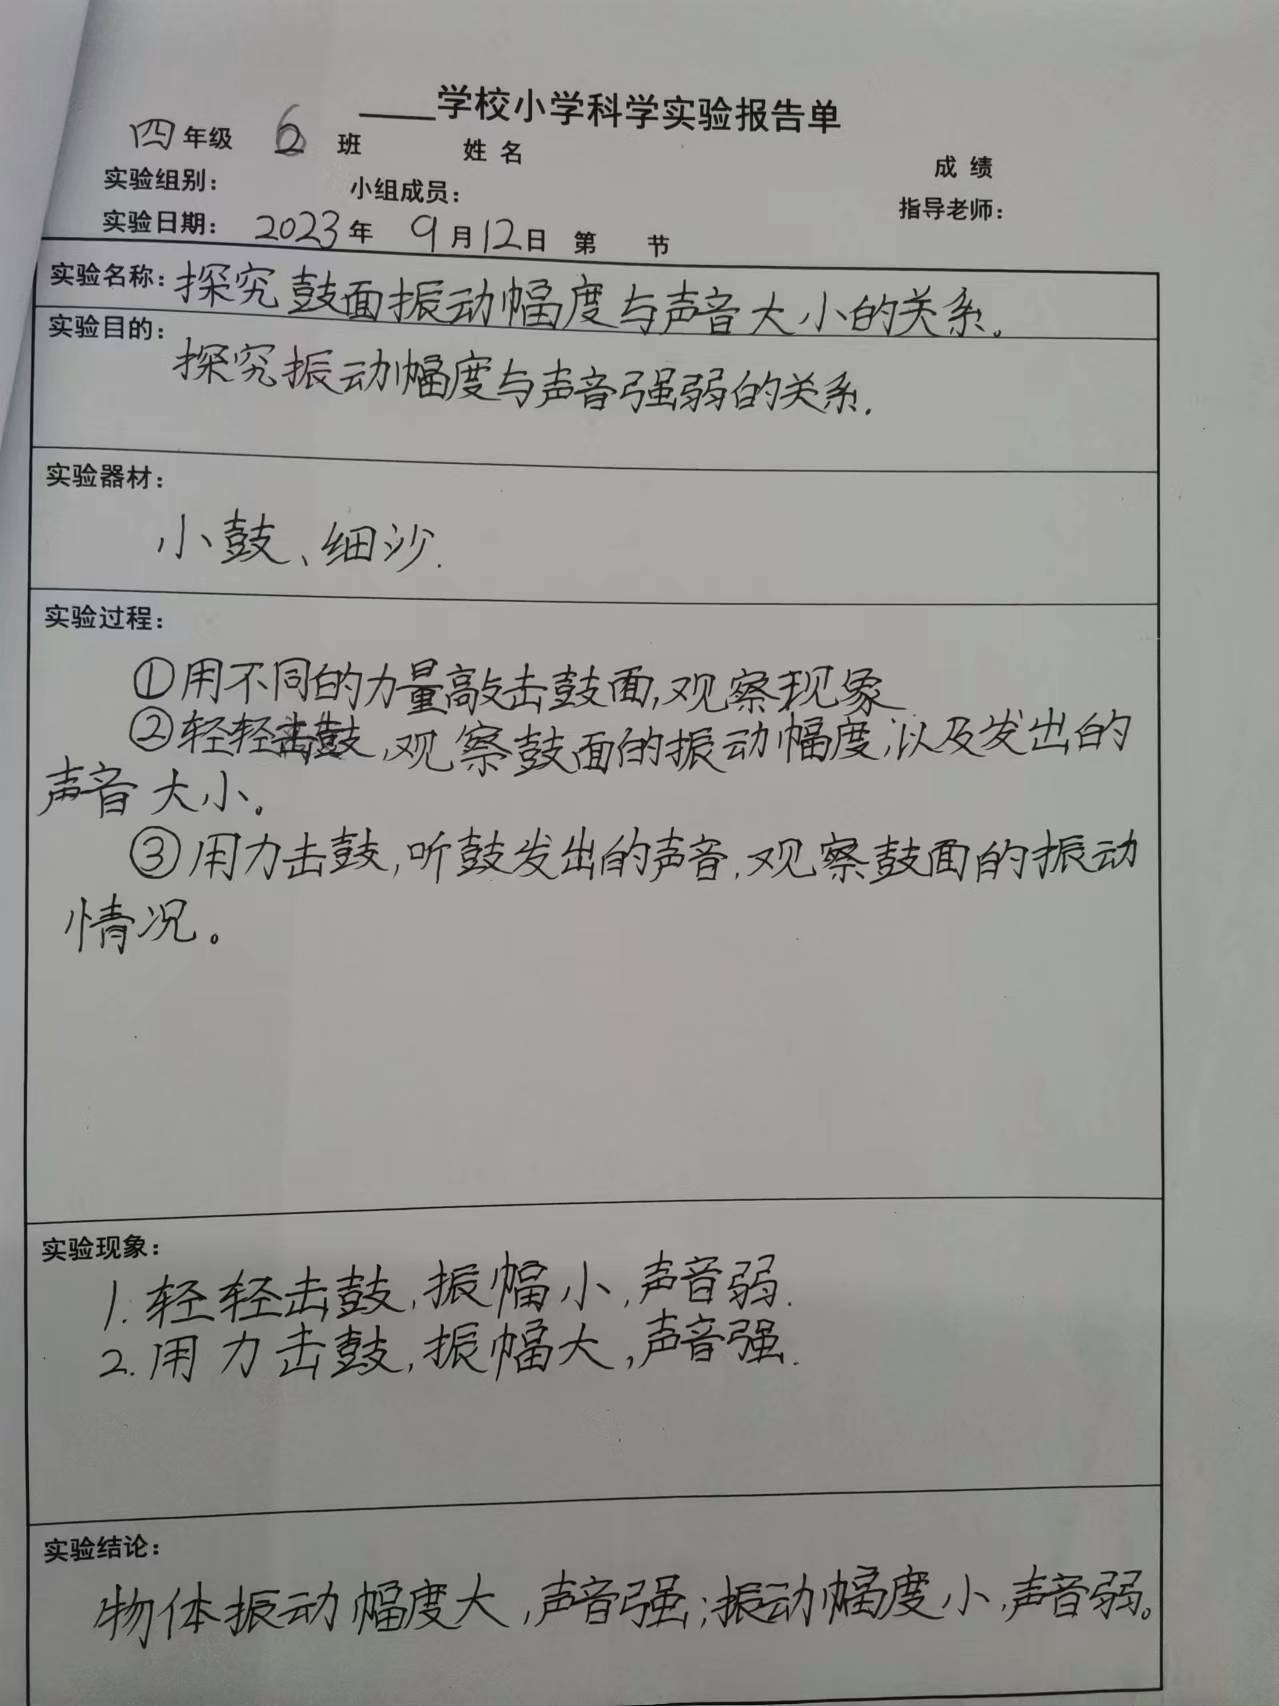 ____学校小学科学实验报告单
四年级 6 班 姓名 成绩
实验组别： 小组成员： 指导老师：
实验日期： 2023年 9月12日 第 节
实验名称：探究鼓面振动幅度与声音大小的关系。
实验目的：
探究振动幅度与声音强弱的关系.
实验器材：
小鼓、细沙.
实验过程：
①用不同的力量敲击鼓面,观察现象
②轻轻击鼓,观察鼓面的振动幅度,以及发出的
声音大小。
③用力击鼓,听鼓发出的声音,观察鼓面的振动
情况。
实验现象：
1.轻轻击鼓,振幅小,声音弱.
2.用力击鼓,振幅大,声音强.
实验结论：
物体振动幅度大,声音强;振动幅度小,声音弱。